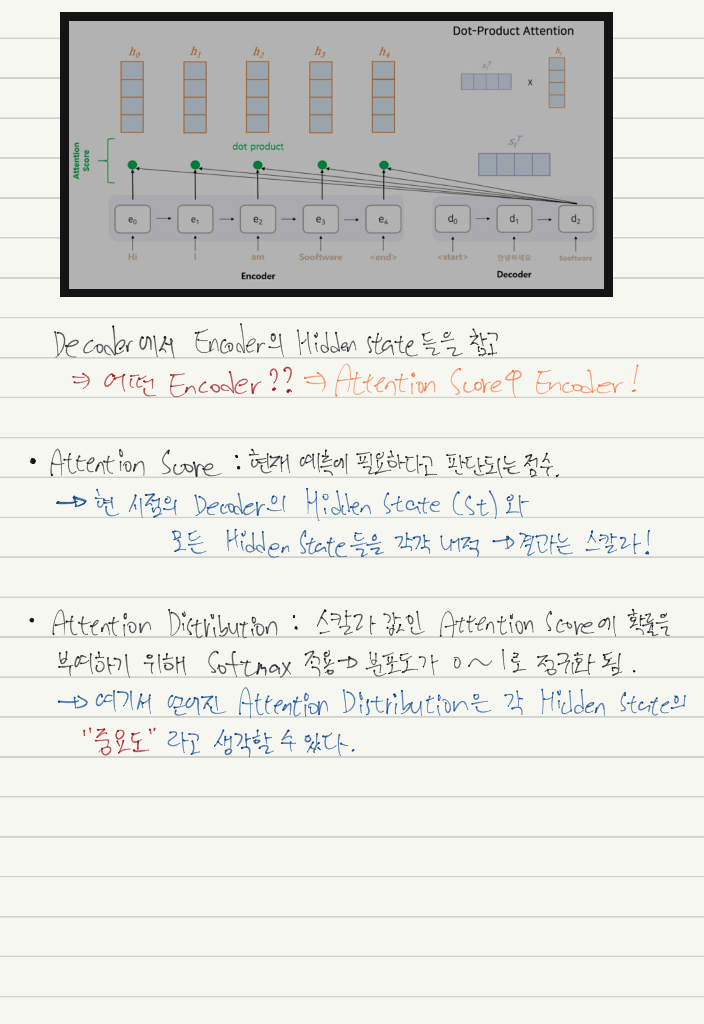 Dot-Product Attention
h₀ h₁ h₂ h₃ h₄
sₜᵀ x hᵢ
dot product
sₜᵀ
Attention Score
e₀ e₁ e₂ e₃ e₄ d₀ d₁ d₂
Hi I am Sooftware <end> <start> 안녕하세요 Sooftware
Encoder Decoder
Decoder에서 Encoder의 Hidden state들을 참고
⇒ 어떤 Encoder?? ⇒ Attention Score가 Encoder!
• Attention Score : 현재 예측에 필요하다고 판단되는 점수.
→ 현 시점의 Decoder의 Hidden State (St)와
모든 Hidden State들을 각각 내적 → 결과는 스칼라!
• Attention Distribution : 스칼라 값인 Attention Score에 확률을
부여하기 위해 Softmax 적용 → 분포도가 0 ~ 1로 정규화 됨.
→ 여기서 얻어진 Attention Distribution은 각 Hidden State의
"중요도" 라고 생각할 수 있다.